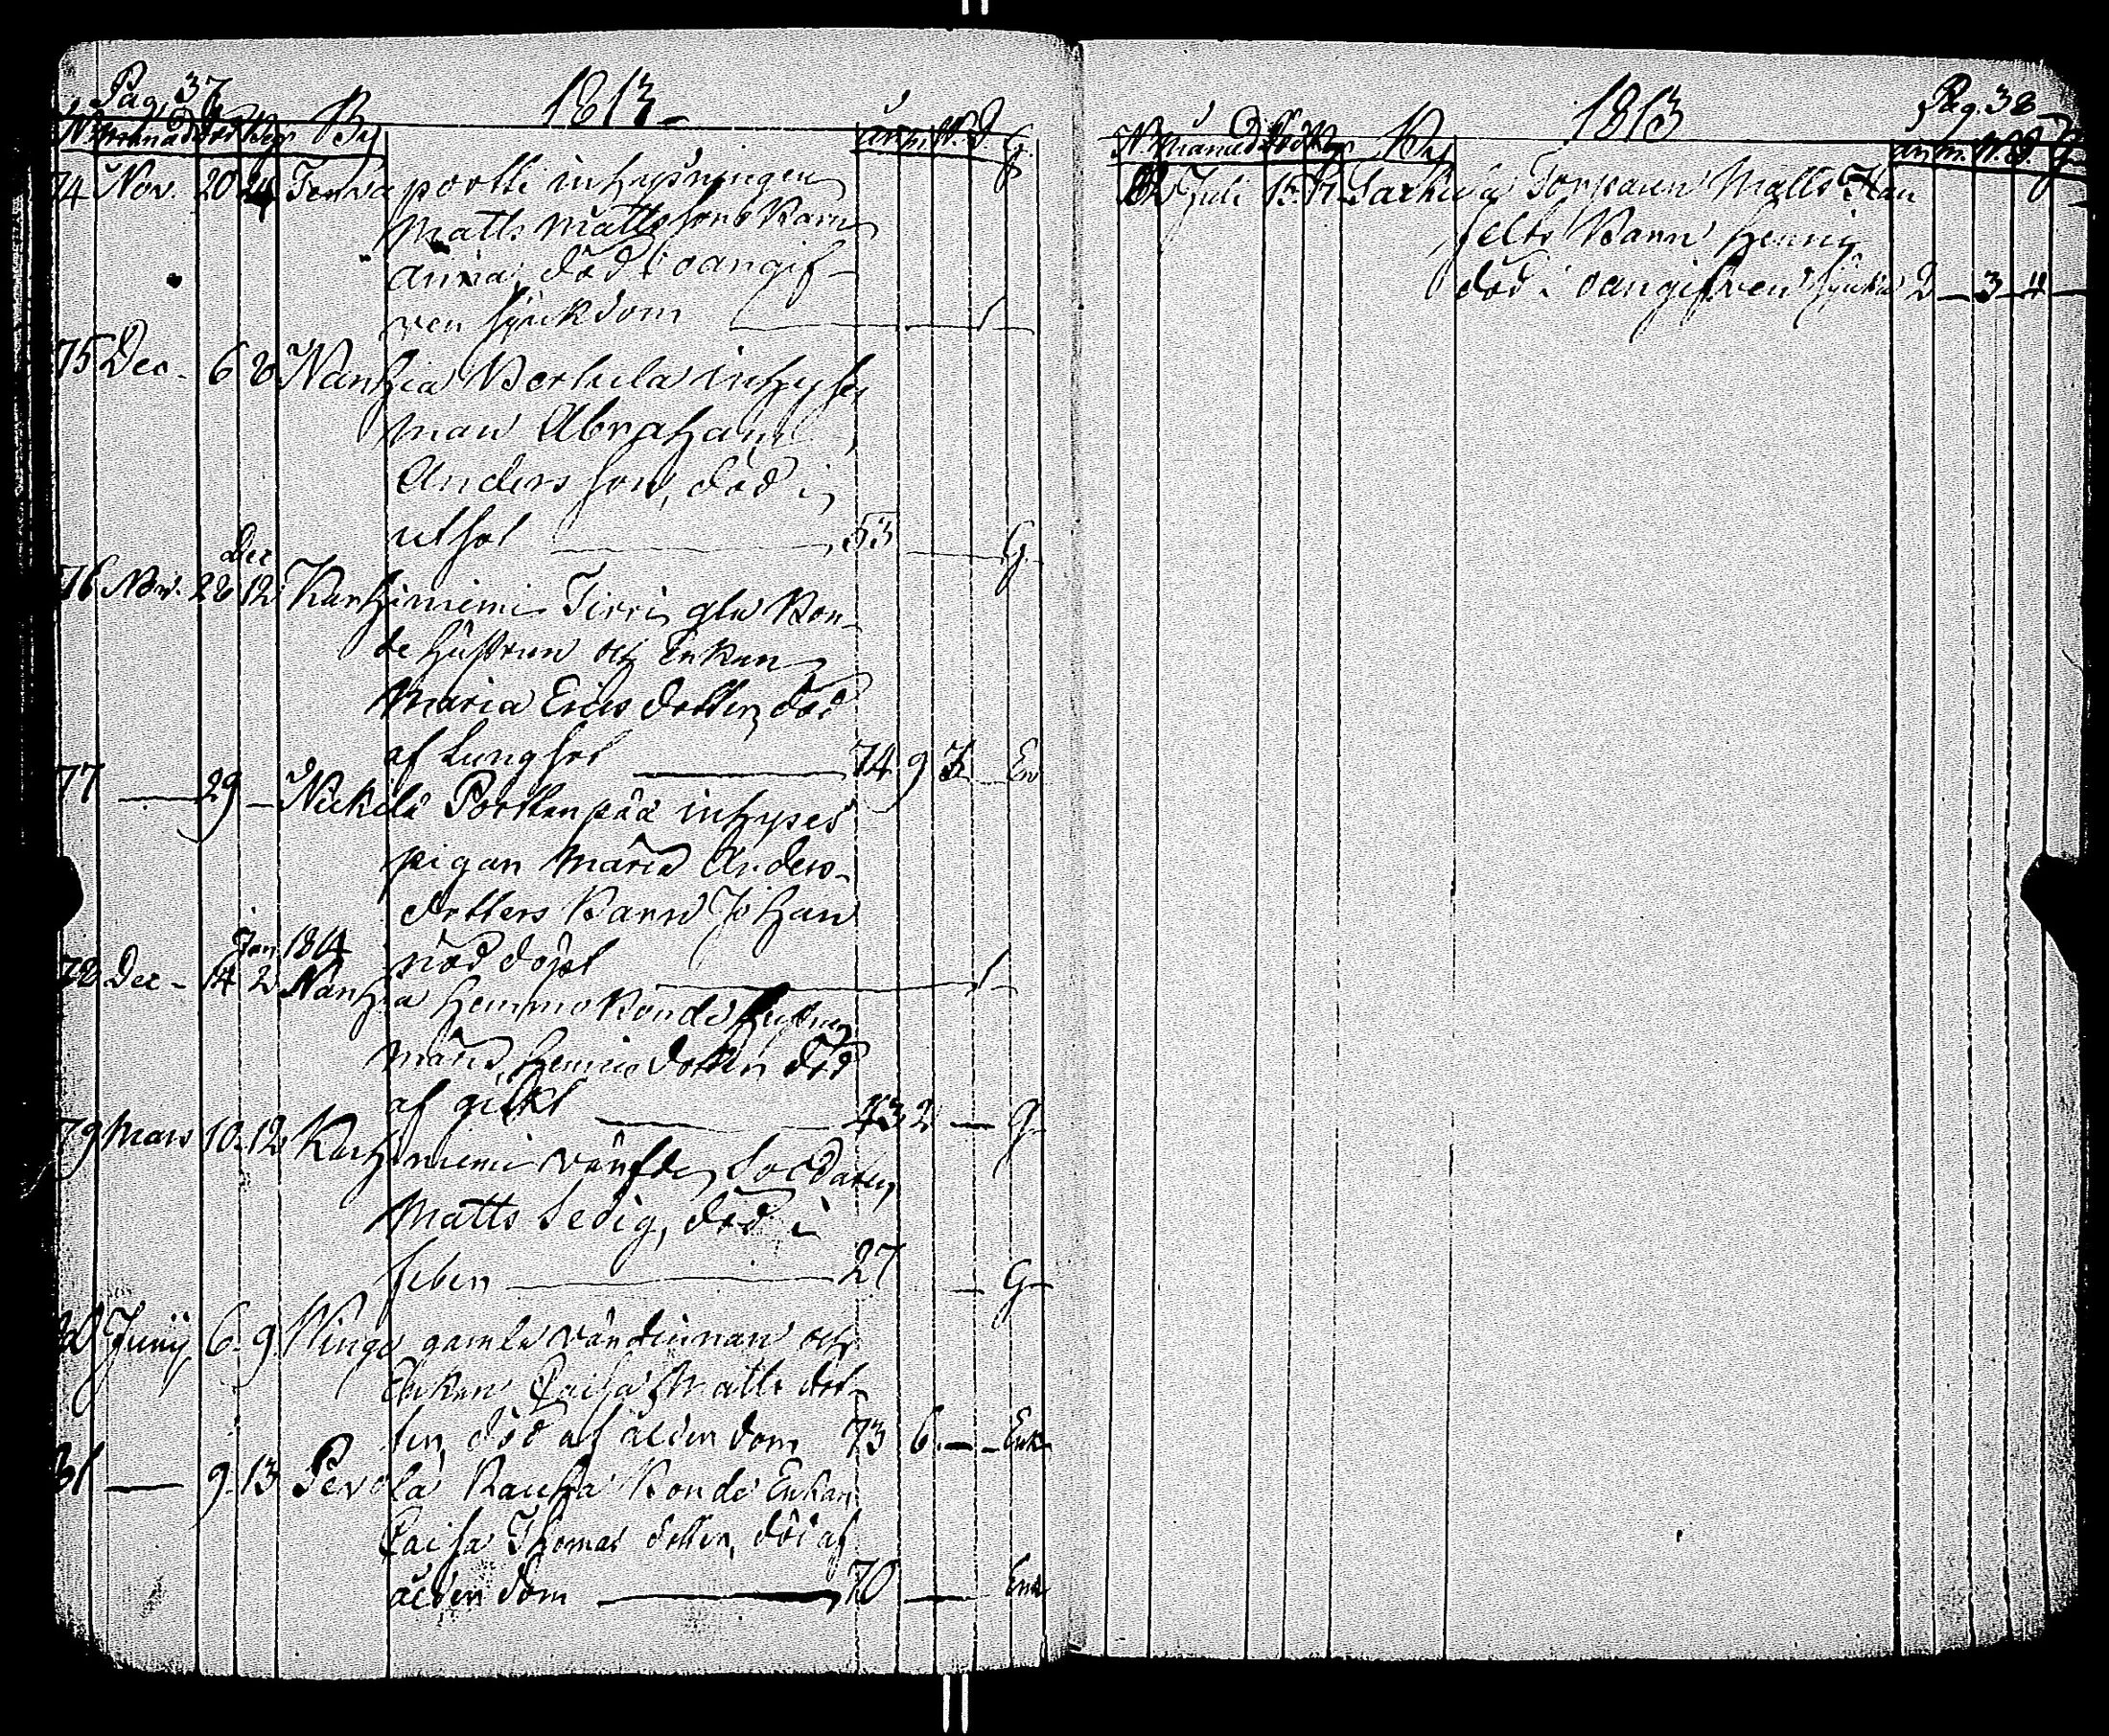 Pag. 37 1813
N. månad död Beg. By år m. W. D. G.
74 Nov. 20 24 Terva portti inhysningen
Matts Mattssons Barn
Anna, död i oangif-
ven sjukdom 1
75 Dec. 6 8 Nanhia Perkula inhyses
man Abraham
Andersson, död i
utsot 53 G.
Dec
76 Nov. 28 12 Karhiniemi Jirri gla Bon-
de hustrun och Enkan
Maria Ericsdotter, död
af Lungsot 74 9 En
77 — 29 — Nickilä Porttanpää inhyses
pigan Maria Anders-
dotters Barn Johan
nöddöpt 1
Jan 1814
78 Dec 14 2 Nanhia Hemmo Bonde hustrun
Maria Henricsdotter, död
af gikt 43 2 — G
79 Mars 10 12 Karhiniemi vänfde Soldaten
Matts Sedig, död i
feber 27 — G
80 Junij 6 9 gamla värdinnan och
Enkan Caisa Matts dot-
ter, död af ålderdom 73 6 — — Enk
81 — 9 13 Pevola Rauha Bonde Enkan
Caisa Thomas dotter, död af
ålderdom 70 — Enk
1813 Pag. 38
N. månad död Beg. By år m. W. D. G
82 Juli 15 17 Torparen Matts Han
felts Barn Henric
död i oangifven sjukd 2 — 3 4 —